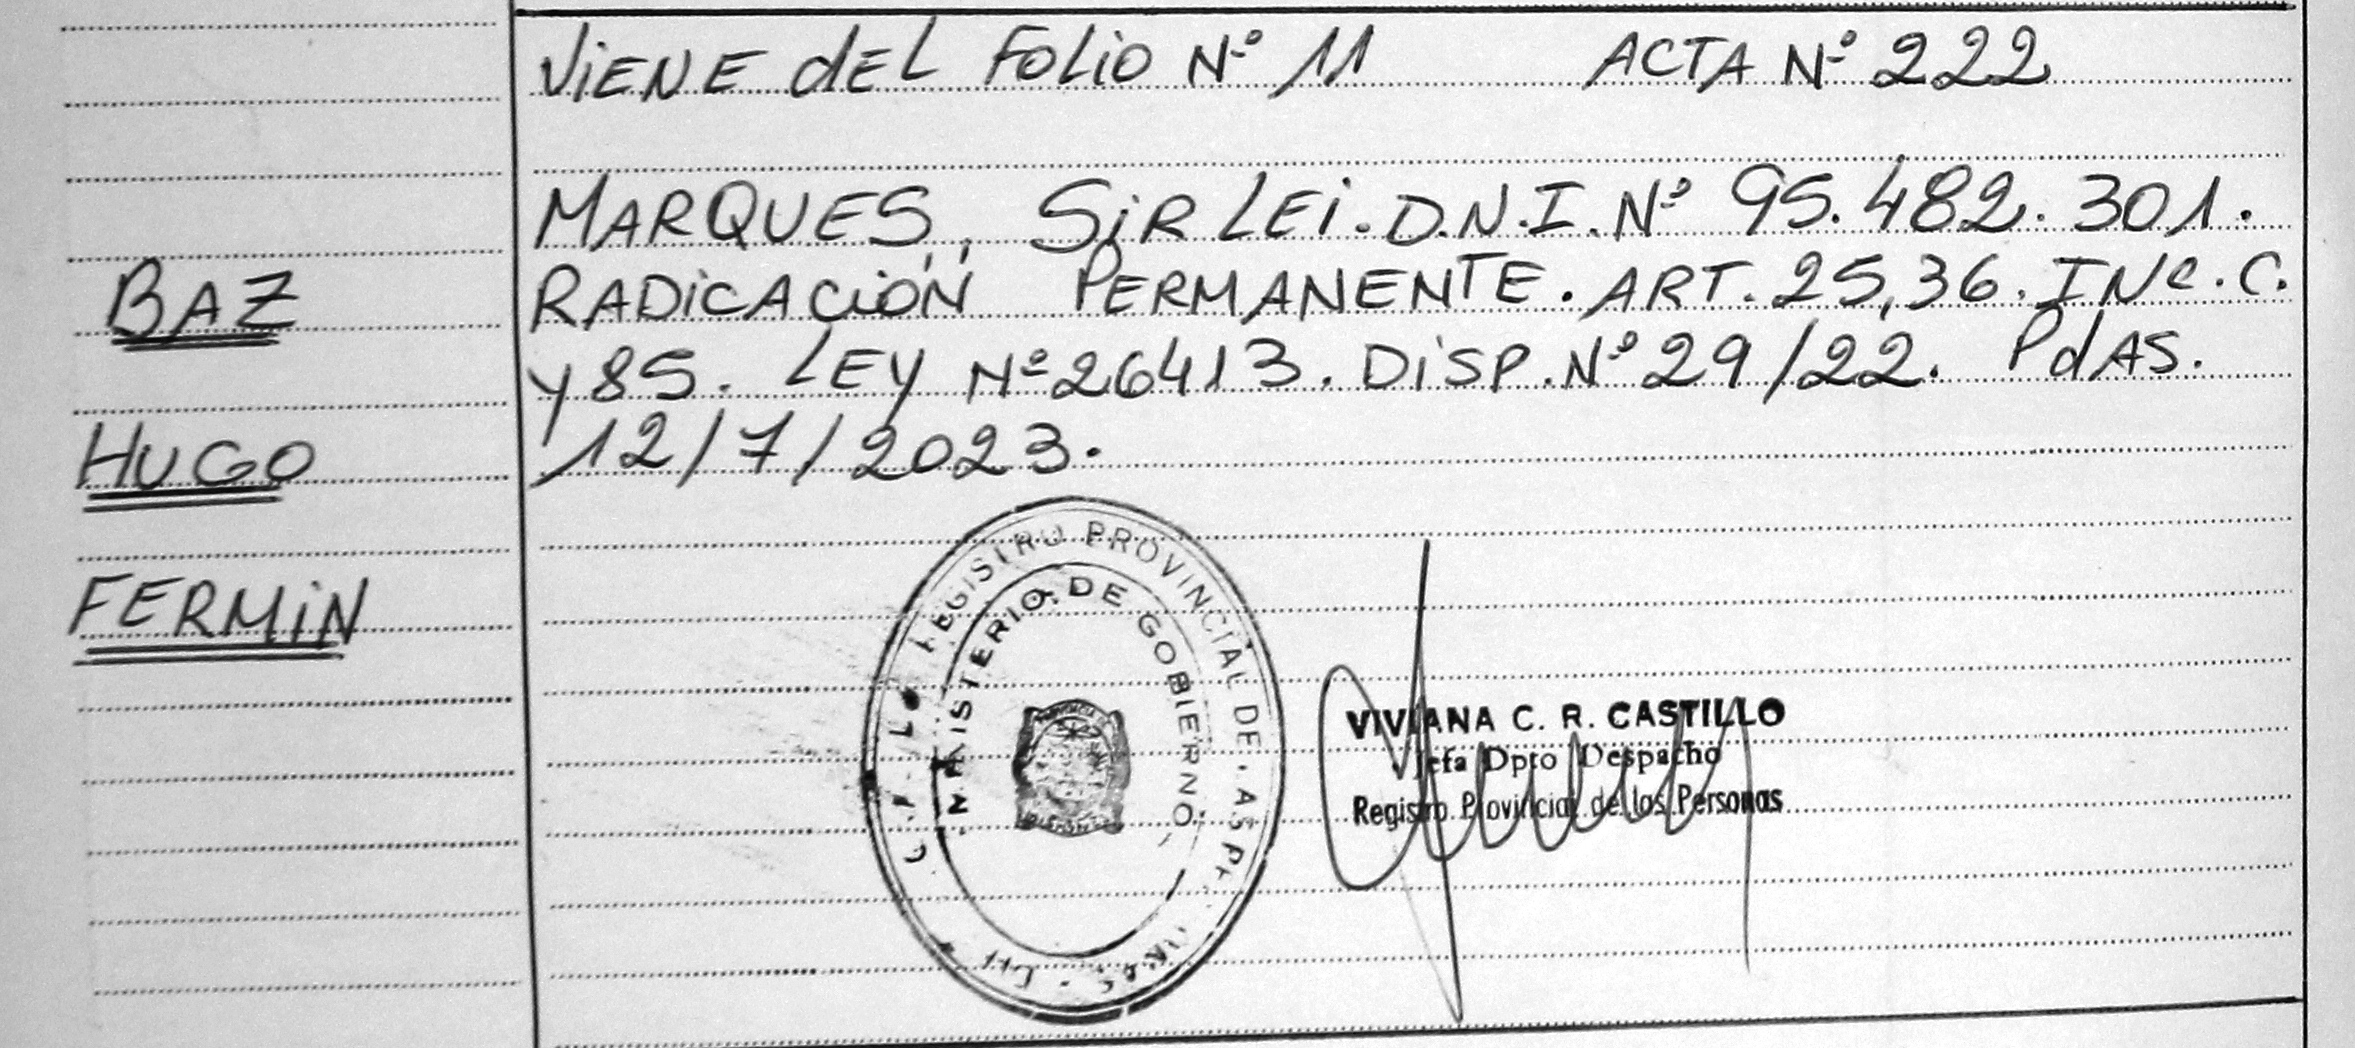 ViENE dEL FoLio Nº 11 ACTA Nº 222
MARQUES, SiRLEi. D.N.I. Nº 95.482.301.
BAZ
RADiCACiÓN PERMANENTE. ART. 25,36. INC. C.
y 85. LEY Nº 26413. DiSP. Nº 29/22. PdAS.
HUGO
12/7/2023.
FERMiN
REGISTRO PROVINCIAL DE
MINISTERIO DE GOBIERNO
VIVIANA C. R. CASTILLO
Jefa Dpto Despacho
Registro Provincial de las Personas